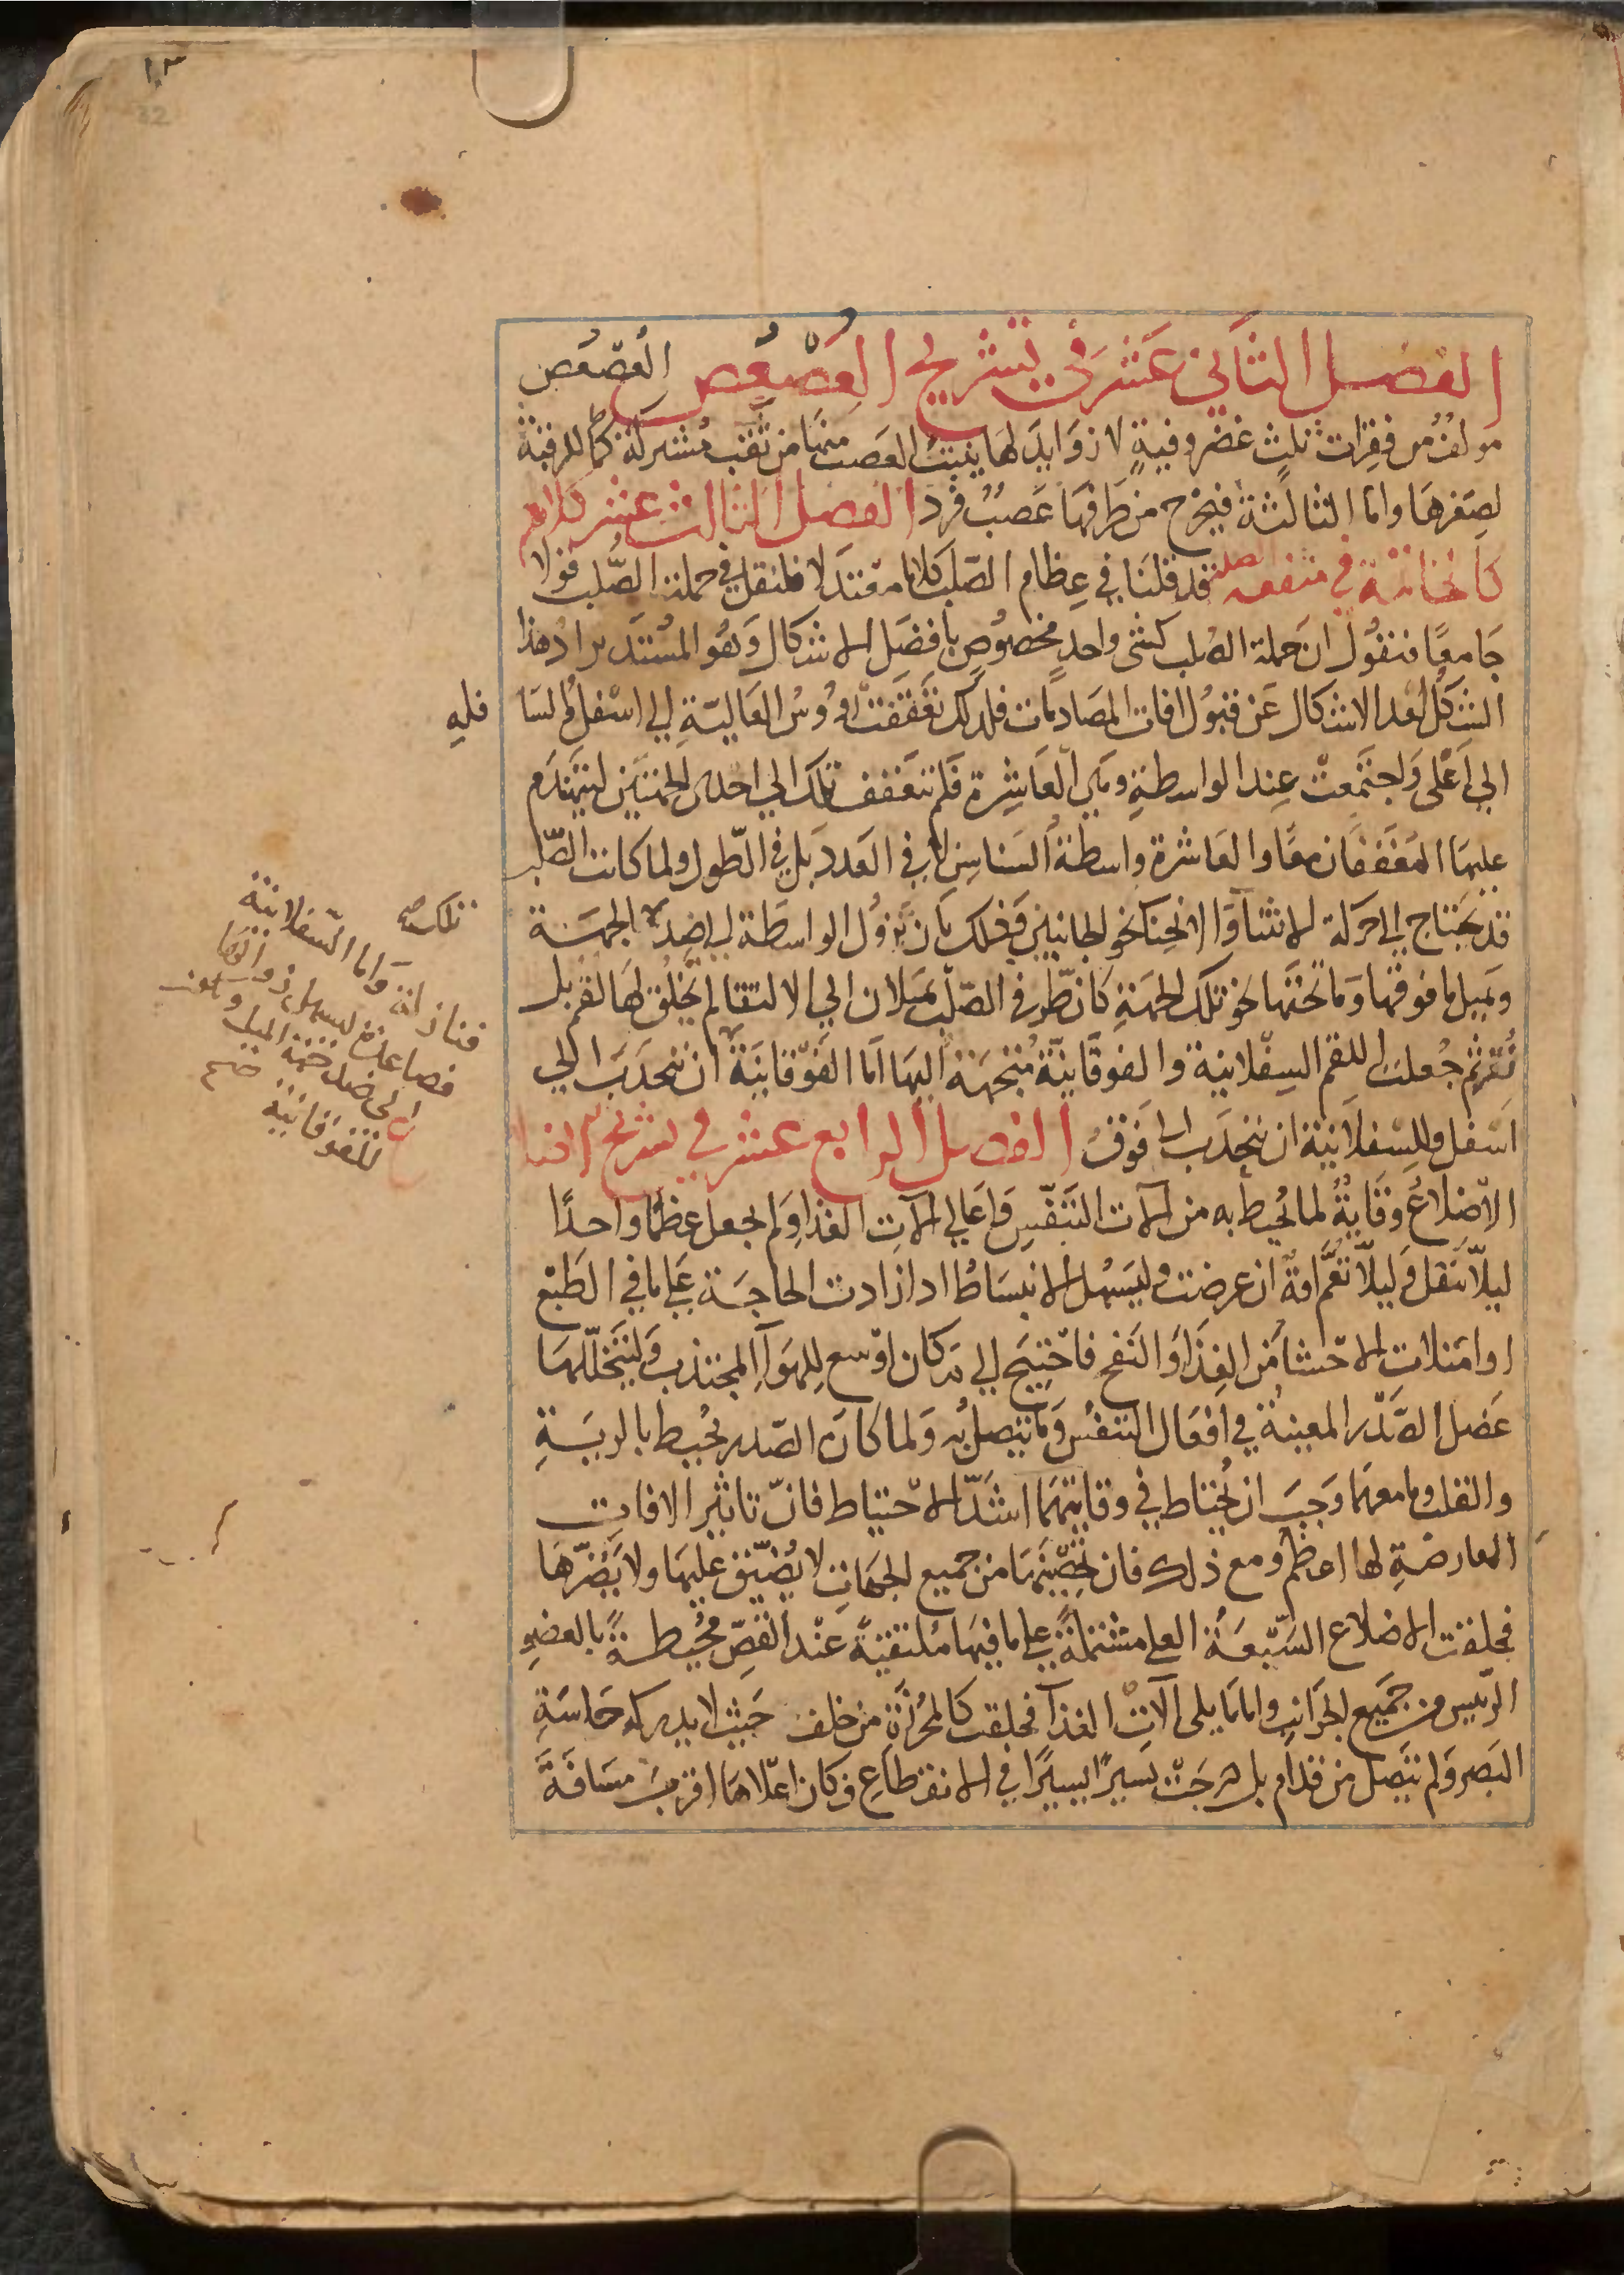 ١٠٣
32
الفصل الثاني عشر في تشريح العُصْعُص العُصْعُص
مولفٌ من فقرات ثلث غضروفيةٍ لا زوايدَ لها ينبت العصب منها من ثقب مشتركة كما للرقبة
لصغرها واما الثالثة فيخرج من طرفها عصبٌ فرد الفصل الثالث عشر كلام
كالخاتمة في منفعة الصلب قد قلنا في عظام الصّلب كلاما معتدلا فلنقل في جملة الصّلب قولا
جامعًا فنقول ان جملة الصلب كشئ واحدٍ مخصوصٍ بافضل الاشكال وهو المستدير اذ هذا
الشكل ابعد الاشكال عن قبول افات المصادمات فلذلك تعقفت روُوس العالية الي اسفل والسا
فليه
الي اعلى واجتمعت عند الواسطة وهي العاشرة فلم تتعقف تلك الي احدي الجهتين لتتهندم
عليها المعقفتان معًا والعاشرة واسطة السناسن لا في العدد بل في الطّول ولما كانت الصّلب
قد يحتاج الي حركة الانثنا والانحنا نحو الجانبين وذلك بان تزول الواسطة الي ضد الجهة
ويميل ما فوقها وما تحتها نحو تلك الجهة كان طرفي الصّلب يميلان الي الالتقا لم تخلق لها لقم بل
نُقر ثم جعلت اللقم السفلانية والفوقانية متجهة اليها اما الفوقانية ان تنجذب الي
اسفل وللسفلانية ان تنجذب الي فوق الفصل الرابع عشر في تشريح الاضلا
الاضلاعُ وقايةٌ لما تُحيط به من الات التنفّس واعالي الات الغذا ولم تجعل عظمًا واحدًا
ليلّا تثقل وليلّا تعمّ افةٌ ان عرضت وليسهل الانبساطُ اذا زادت الحاجة علي ما في الطبع
او امتلات الاحشا من الغذا والنفخ فاحتيج الي مكان اوسع للهوا المجتذب وليتخلّلها
عضل الصّدر المعينة في افعال التنفّس وما يتصل به ولما كان الصّدر يحيط بالرية
والقلب وما معهما وجب ان يُحتاط في وقايتهما اشدّ الاحتياط فانّ تاثير الافات
العارضة لها اعظم ومع ذلك فان تحصينها من جميع الجهات لا يُضيّق عليها ولا يَضرّها
فخلقت الاضلاع السّبعة العلي مشتملةً علي ما فيها ملتقيةً عند القصّ محيطةً بالعضو
الرّييس من جميع الجوانب واما ما يلي آلات الغذا فخلقت كالمحرزة من خلف حيث لا يدركه حاسة
البصر ولم تتصل من قدام بل درجت يسيرًا يسيرًا في الانقطاع وكان اعلاها اقرب مسافة
واما السّفلانية
للفوقانية